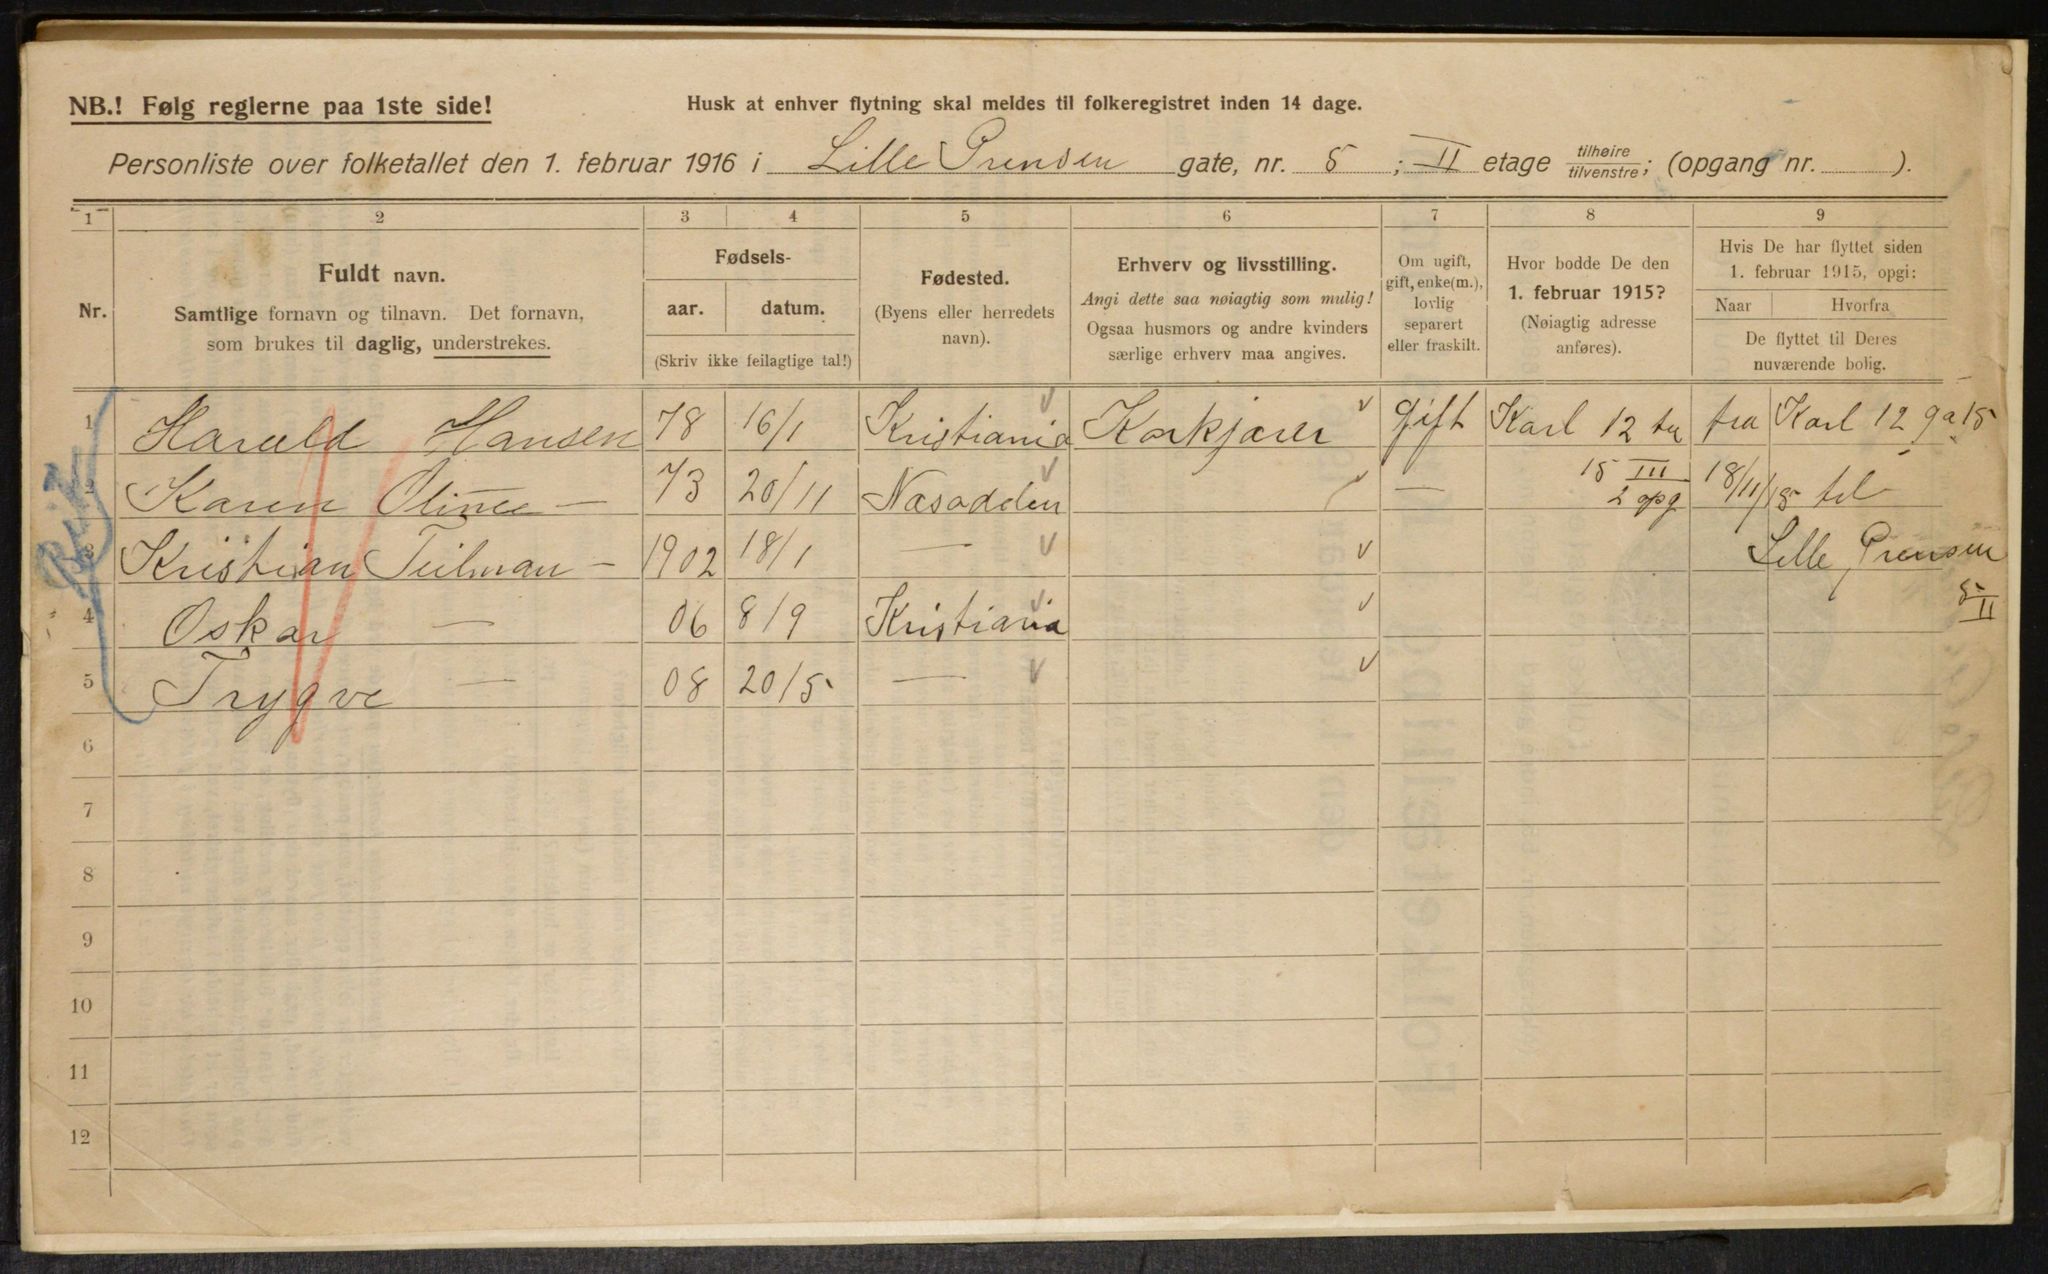 NB.! Følg reglerne paa 1ste side!
Husk at enhver flytning skal meldes til folkeregistret inden 14 dage.
Personliste over folketallet den 1. februar 1916 i Lille Prensen gate, nr. 5 ; II etage tilhøire/tilvenstre; (opgang nr. ).
1 2 3 4 5 6 7 8 9
Nr.
Fuldt navn.
Samtlige fornavn og tilnavn. Det fornavn,
som brukes til daglig, understrekes.
Fødsels-
aar. datum.
(Skriv ikke feilagtige tal!)
Fødested.
(Byens eller herredets
navn).
Erhverv og livsstilling.
Angi dette saa nøiagtig som mulig!
Ogsaa husmors og andre kvinders
særlige erhverv maa angives.
Om ugift,
gift, enke(m.),
lovlig
separert
eller fraskilt.
Hvor bodde De den
1. februar 1915?
(Nøiagtig adresse
anføres).
Hvis De har flyttet siden
1. februar 1915, opgi:
Naar Hvorfra
De flyttet til Deres
nuværende bolig.
1 Harald Hansen 78 16/1 Kristiania Korkjører gift Karl 12 fra Karl 12 ga 15
2 Karen Oline — 73 20/11 Næsodden — 15 III 2 opg 18/11/15 til
3 Kristian Teilman — 1902 18/1 — Lille Prensen
4 Oskar — 06 8/9 Kristiania 5 II
5 Trygve — 08 20/5 —
6
7
8
9
10
11
12